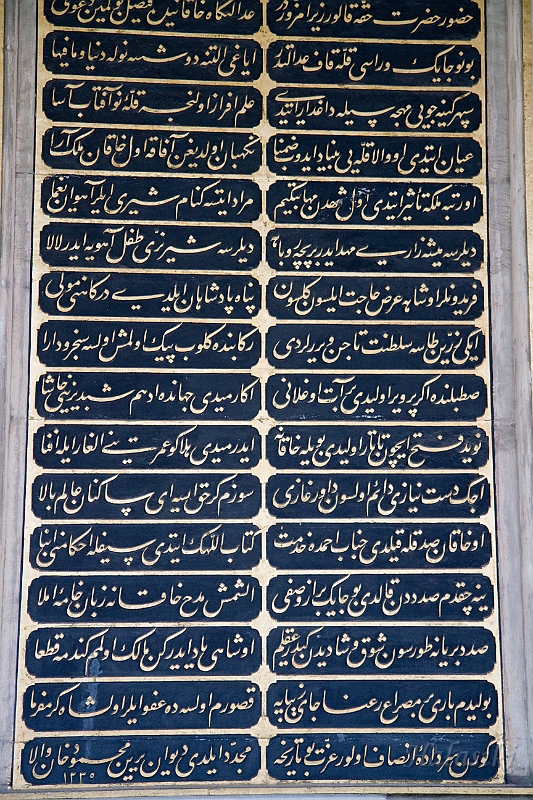 حضور حضرت حقه قالور زیرا مرور عدالتکاه خاقانیدن فیصل بولمین دعوی
بونوجایك وراسی قله قاف عدالتدر ایاغی التنده دوشسه نوله دنیا و مافیها
سپهر کینه جویی مهجه سیله داغدار ایتدی علم افراز اولنجه قله نو آفتاب آسا
عیان ایتدی او والا قله یی بنیاد ایدوب ضمنا نکهبان اولدیغن آفاقه اول خاقان ملك آرا
او رتبه ملکه تأثیر ایتدی اول شهدن مهابت کیم مراد ایتسه کنام شیری ایلر آهوان یغما
دیلرسه میشه زاری مهد ایدر بچه روباهه دیلرسه شیر نری طفل آهویه ایدر لالا
فریدونلر او شاهه عرض حاجت ایلسون کلسون پناه پادشاهان ایلدی درکاهنی مولی
ایکی زرین طاسه سلطنت تاجن ویررلردی رکابنده کلوب پیك اولمش اولسه سنجر و دارا
صطبلنده اکر پرویز اولیدی بر آت اوغلانی آکارمیدی جهانده ادهم شبدیزینی حاشا
نوید فتح ایچون تاتار اولیدی بویله خاقانه ایدرمیدی هلاکو عمرینی الغار ایله افنا
آچك دست نیازی دائم اولسون داور غازی سوزم کر حق ایسه ای ساکنان عالم بالا
او خاقان صدقله قیلدی جناب احمده خدمت کتاب اللهك ایتدی سیفله احکامنی ابقا
ینه چقدم صدددن قالدی بوجایك براز وصفی التمش مدح خاقانه زبان خامه املا
صدد بریانه طورسون شوق و شادیدن کیدر عقلم او شاهی یاد ایدرکن مالك اولمم کندمه قطعا
بولیدم باری بر مصراع رعنا جای زیبایه قصورم اولسه ده عفو ایلر اول شاه کرمفرما
کورن سرداده انصاف اولور عزت بو تاریخه مجدد ایلدی دیوان یرین محمود خان والا
۱۲۳۵